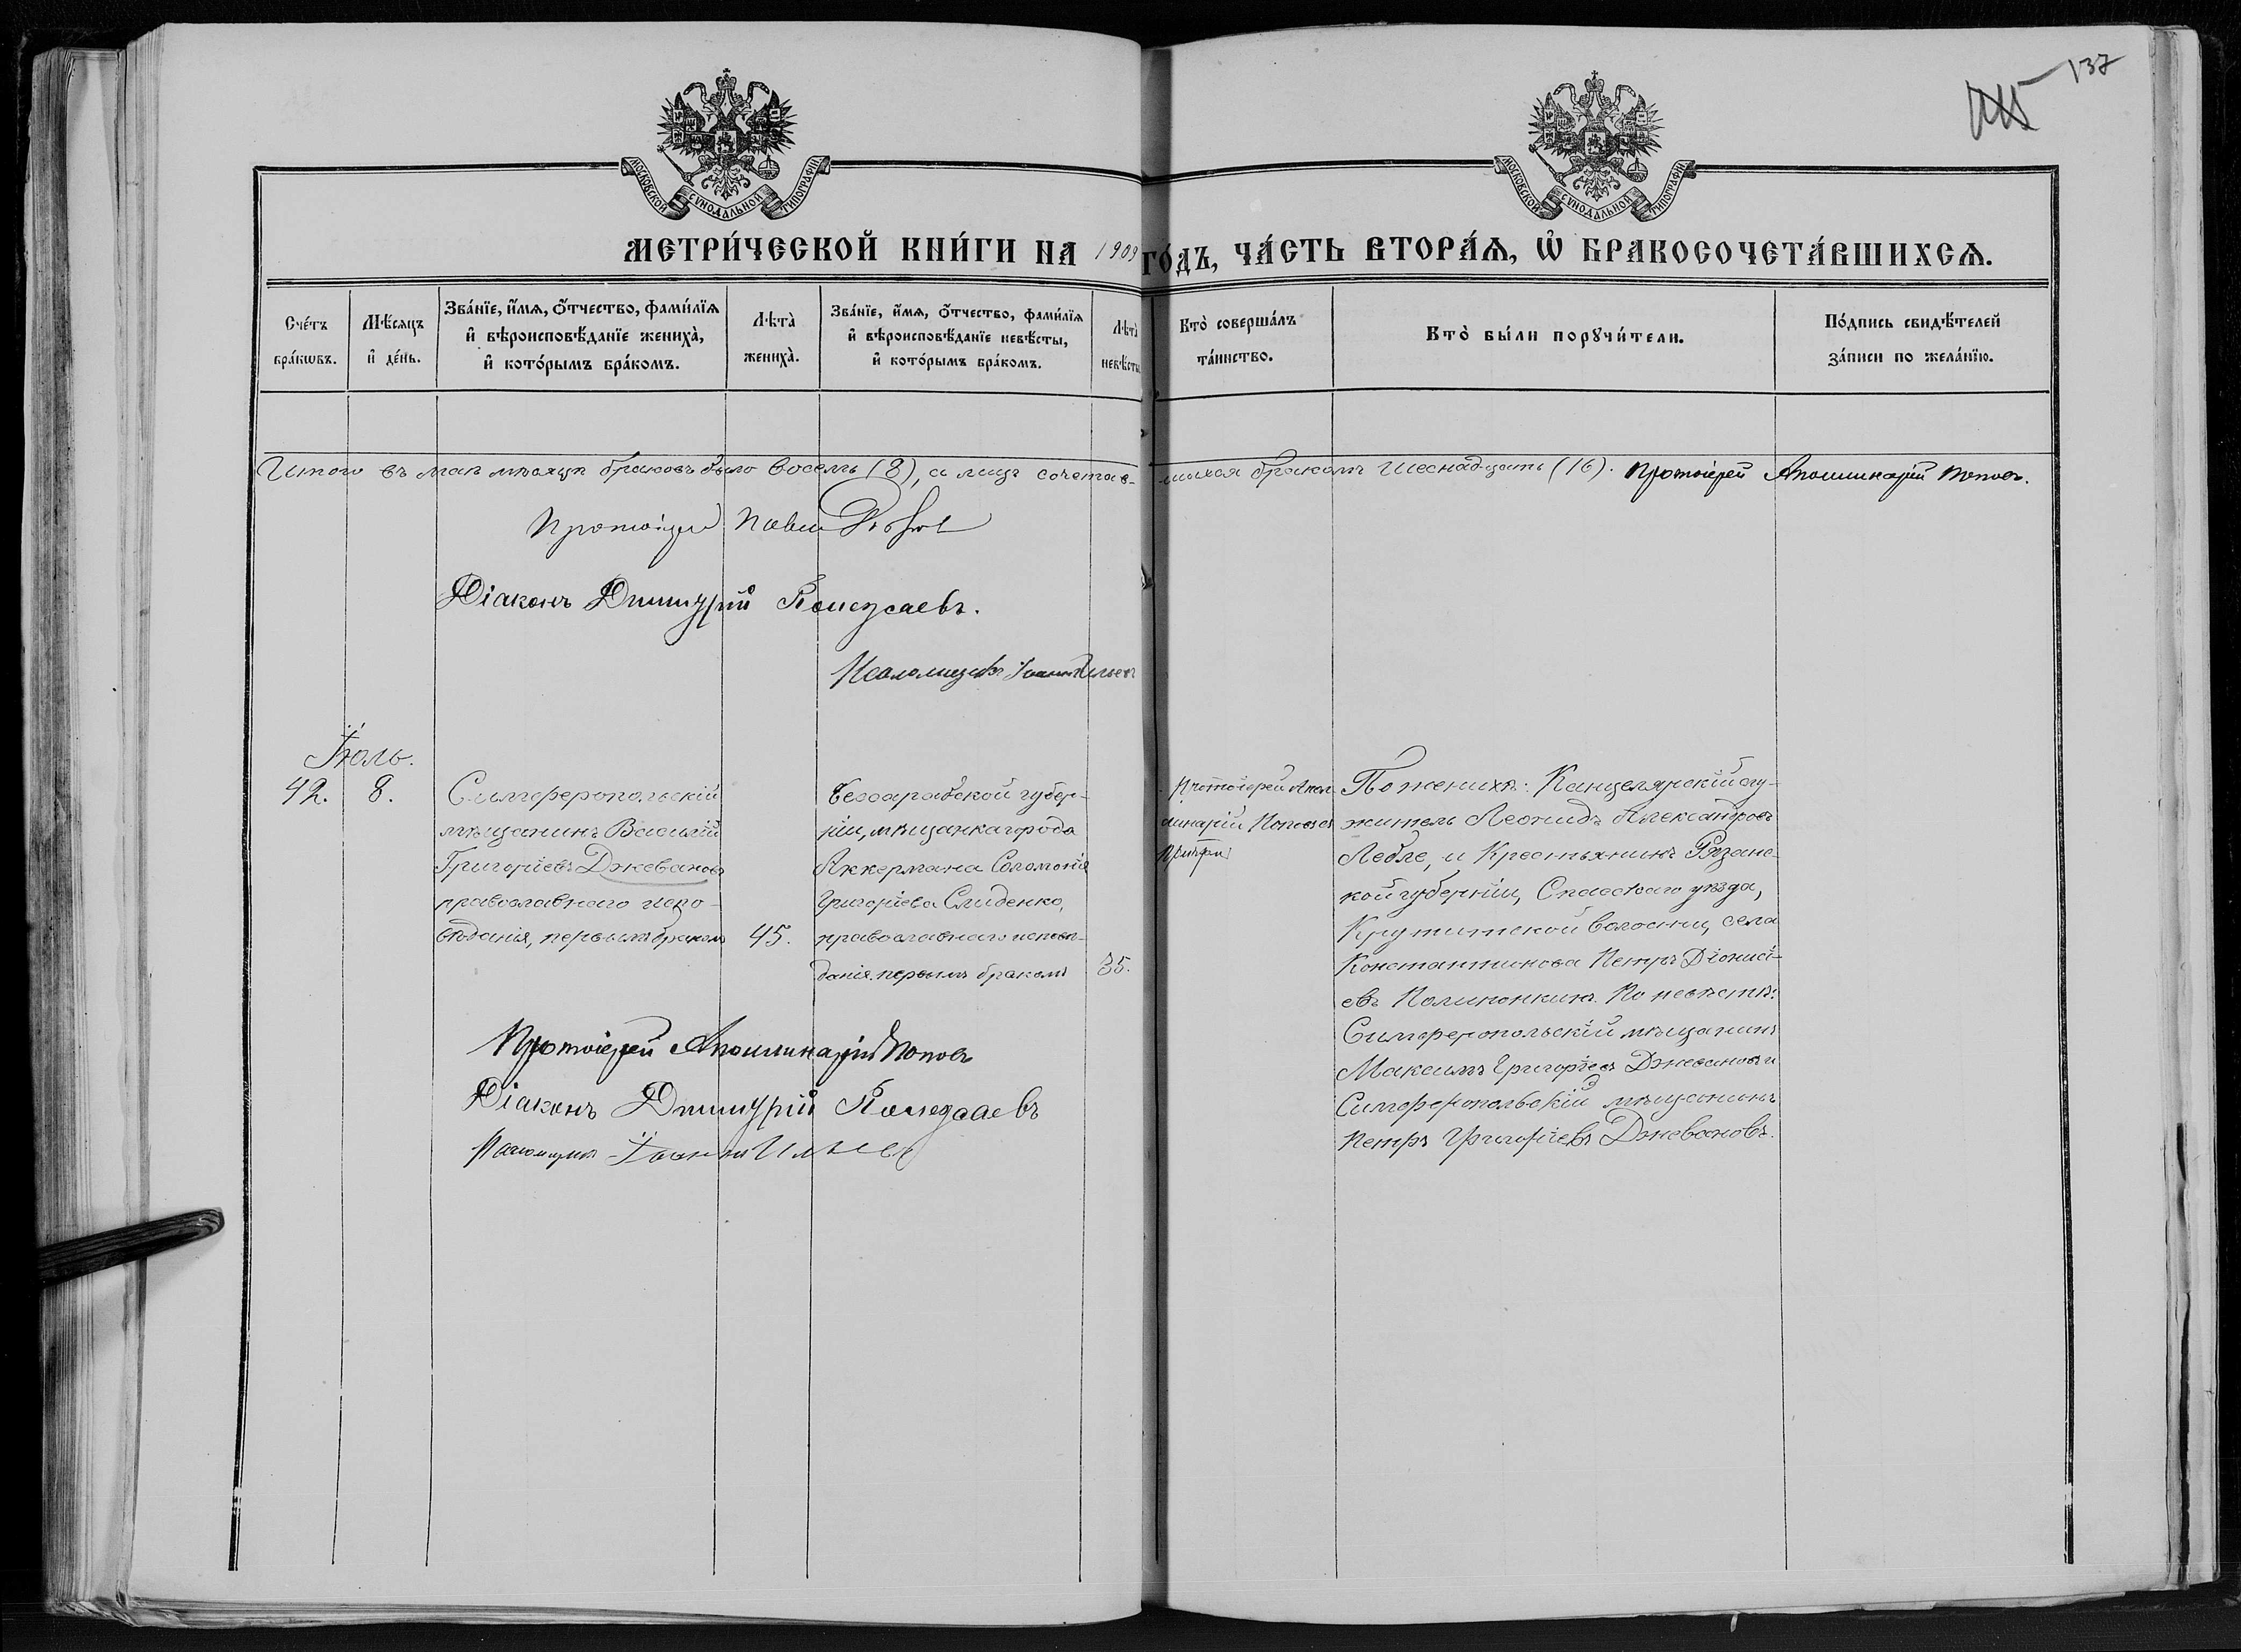 137
115
МОСКОВСКОЙ СѴНОДАЛЬНОЙ ТИПОГРАФІИ
МОСКОВСКОЙ СѴНОДАЛЬНОЙ ТИПОГРАФІИ
МЕТРИ́ЧЕСКОЙ КНИ́ГИ НА 1909 ГО́ДЪ, ЧА́СТЬ ВТОРА́Ѧ, Ѽ БРАКОСОЧЕТА́ВШИХСѦ.
Сче́тъ
бра́кѡвъ.
Мѣ́сѧцъ
и҆ де́нь.
Зва́нїе, и҆́мѧ, ѻ҆́тчество, фами́лїѧ
и҆ вѣроисповѣ́данїе жениха̀,
и҆ кото́рымъ бра́комъ.
Лѣта̀
жениха̀.
Зва́нїе, и҆́мѧ, ѻ҆́тчество, фами́лїѧ
и҆ вѣроисповѣ́данїе невѣ́сты,
и҆ кото́рымъ бра́комъ.
Лѣта̀
невѣ́сты
Кто̀ соверша́лъ
та́инство.
Кто̀ бы́ли порꙋчи́тели.
По́дпись свидѣ́телей
за́писи по жела́нїю.
Итого въ маѣ мѣсяцѣ браковъ было восемь (8), а лицъ сочетав-
шихся бракомъ шеснадцать (16). Протоіерей Аполлинарій Поповъ.
Протоіерей Павелъ
Діаконъ Димитрій
Псаломщикъ Іоаннъ Ильевъ
Іюль.
42.
8.
Симферопольскій
мѣщанинъ Василій
Григоріевъ Джевановъ
православнаго испо-
вѣданія, первымъ бракомъ
45.
Бессарабской губер-
ніи, мѣщанка города
Аккермана Соломонія
Григоріева Слиденко,
православнаго исповѣ-
данія первымъ бракомъ
35.
Протоіерей Апол-
линарій Поповъ съ
Причтомъ
По женихѣ: Канцелярскій слу-
житель Леонидъ Александровъ
Ледле, и Крестьянинъ Рязанс-
кой губерніи, Спасскаго уѣзда,
волости, села
Константинова Петръ Діонисі-
евъ По невѣстѣ:
Симферопольскій мѣщанинъ
Максимъ Григоріевъ Джевановъ и
Симферопольскій мѣщанинъ
Петръ Григоріевъ Джевановъ.
Протоіерей Аполлинарій Поповъ
Діаконъ Димитрій
Псаломщикъ Іоаннъ Ильевъ